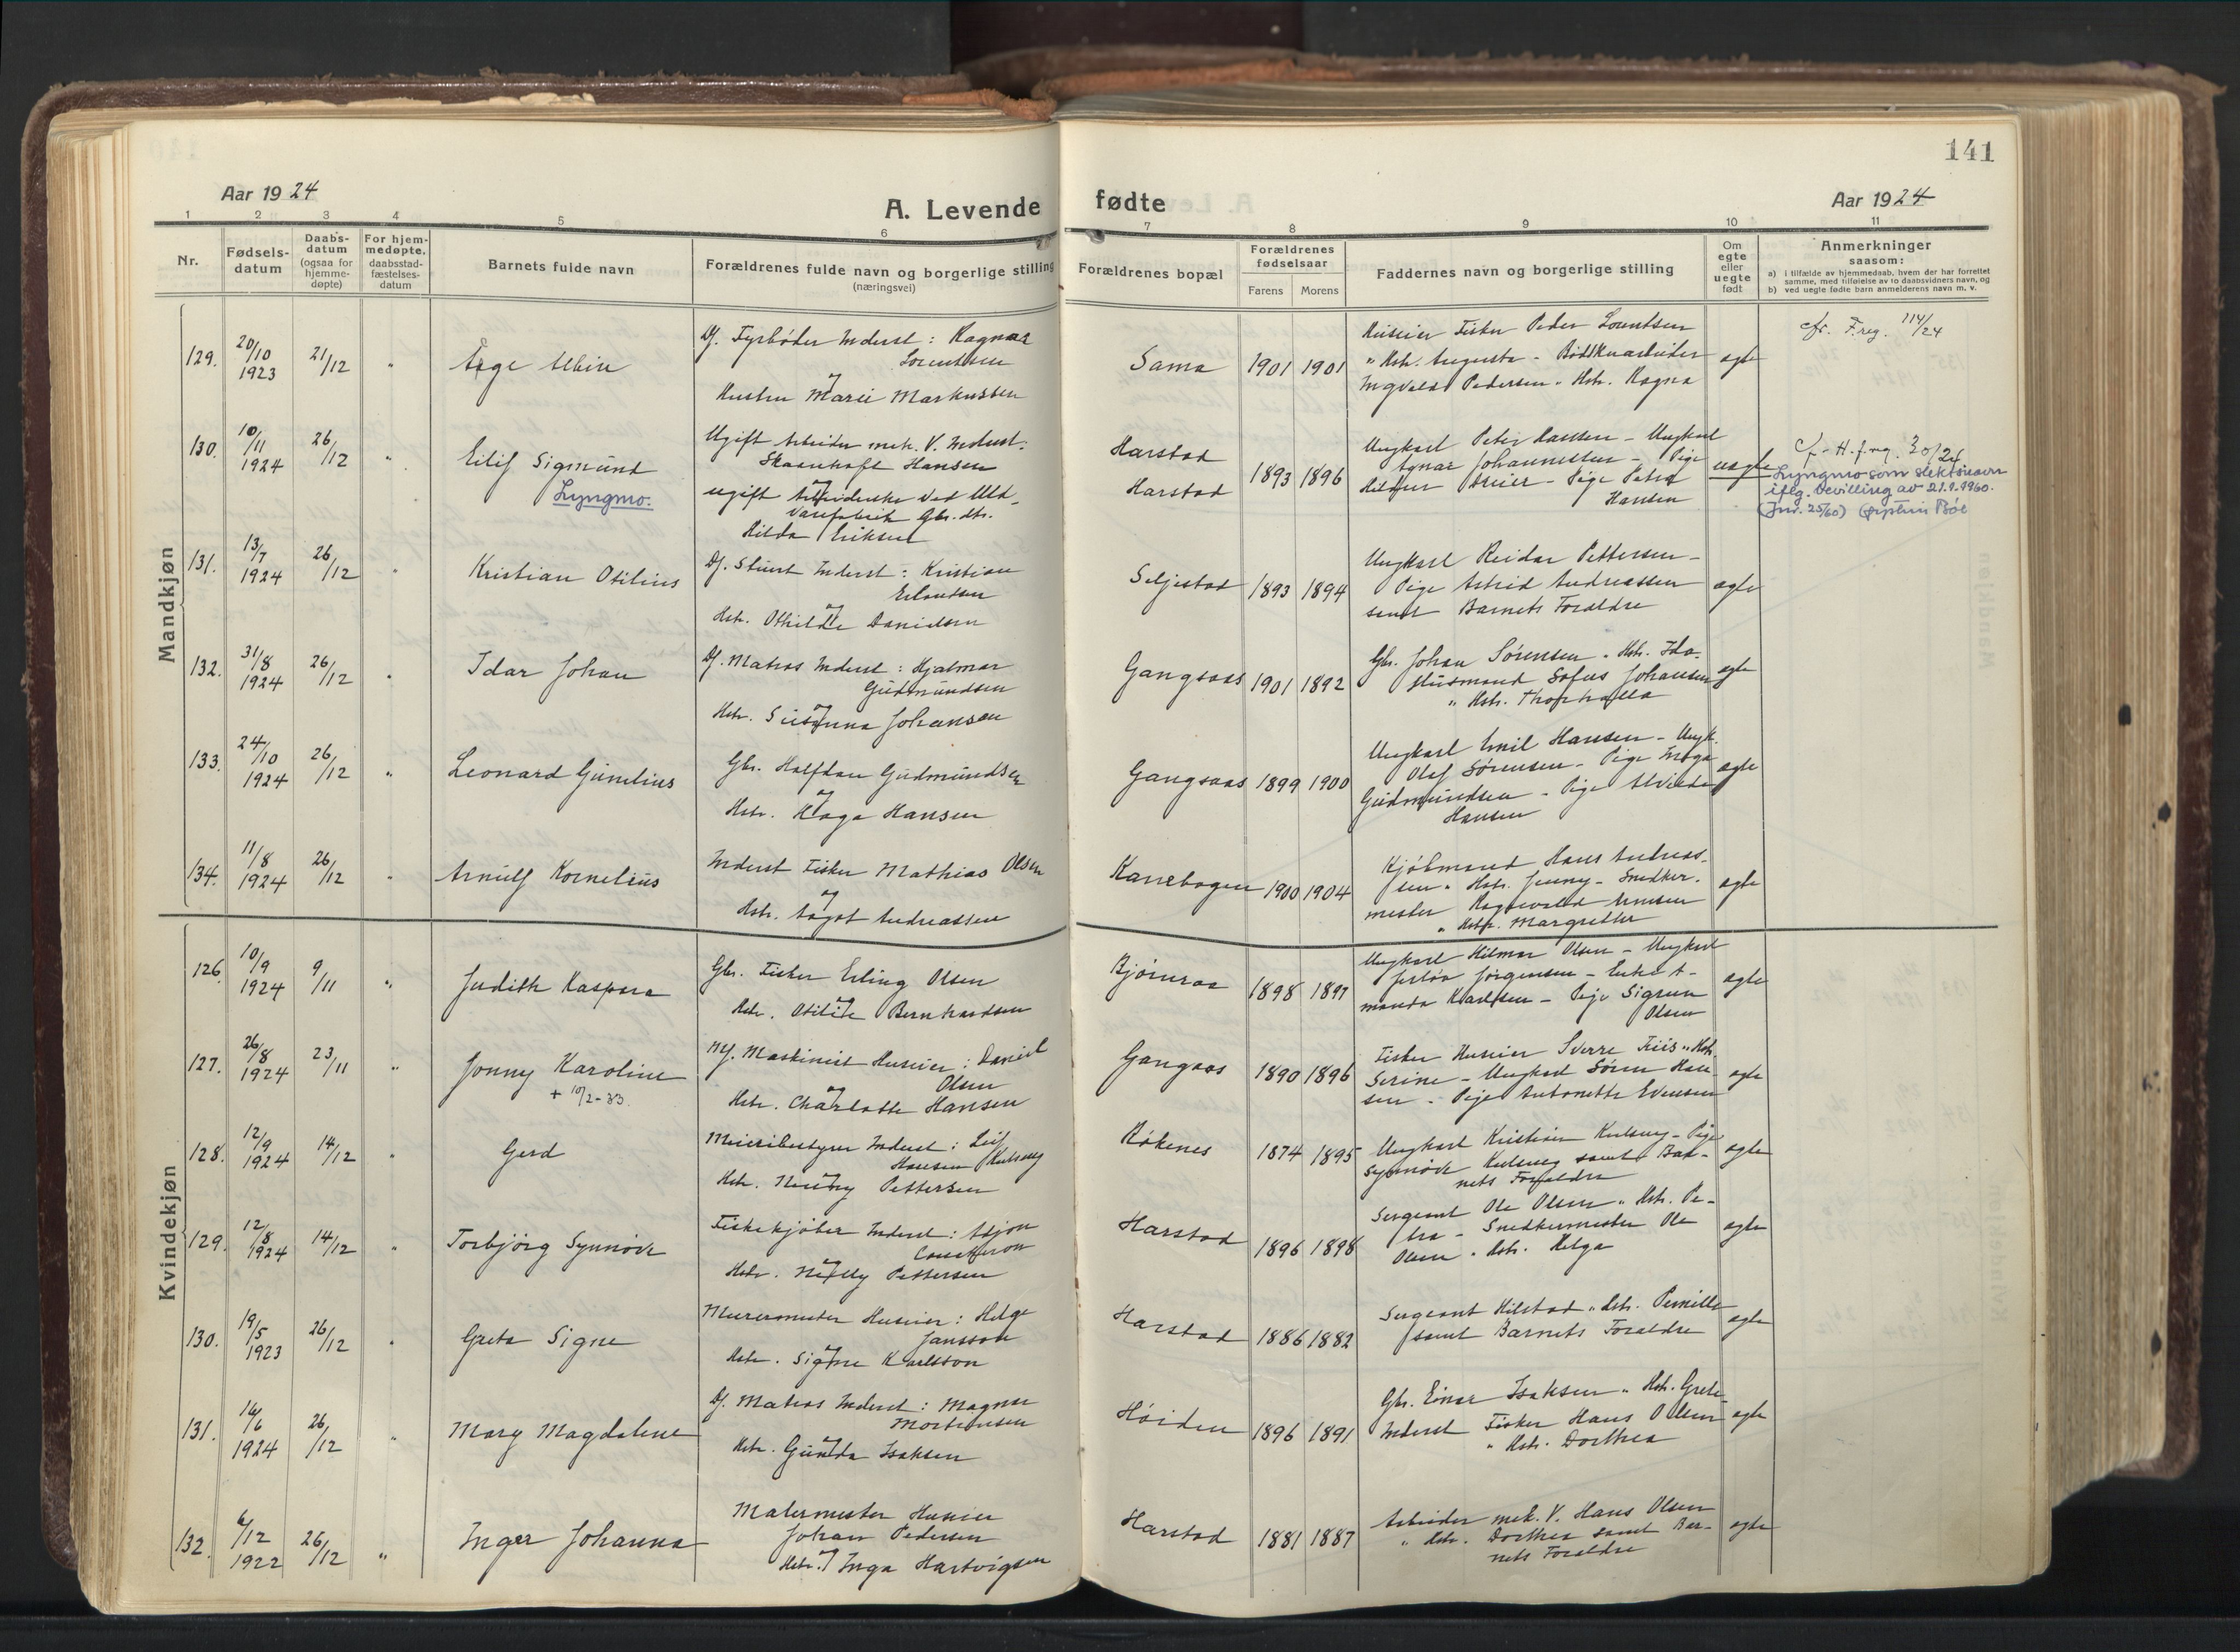 141
Aar 1924
A. Levende fødte
Aar 1924
1 2 3 4 5 6 7 8 9 10 11
Nr.
Fødsels-
datum
Daabs-
datum
(ogsaa for
hjemme-
døpte)
For hjem-
medøpte,
daabsstad-
fæstelses-
datum
Barnets fulde navn
Forældrenes fulde navn og borgerlige stilling
(næringsvei)
Forældrenes bopæl
Forældrenes
fødselsaar
Farens Morens
Faddernes navn og borgerlige stilling
Om
egte
eller
uegte
født
Anmerkninger
saasom:
a) i tilfælde av hjemmedaab, hvem der har forrettet
samme, med tilføielse av to daabsvidners navn, og
b) ved uegte født barn anmelderens navn m. v.
Mandkjøn
129. 20/10 1923 21/12 " Åge Albin
Df. Fyrbøder Inderst: Ragnar
Lorentsen
og
Hustru Marie Markussen
Sama 1901 1901
Huseier Fisker Peder Lorentsen
" Hstr. Augusta -
Ingvald Pedersen " Hstr. Ragna
egte
cfr. Freg. 114/24
130. 10/11 1924 26/12 " Eilif Sigmund
Lyngmo.
Ugift Arbeider mek. V. Inderst:
Skaanhaft Hansen
og
ugift Arbeiderske ved Uld-
varefabrik Gbr. dtr.
Hilda Eriksen
Harstad
Harstad 1893 1896
Ungkarl Peter Hansen - Ungkarl
Agnar Johannessen - Pige
Hildur Dreier - Pige Petra
Hansen
uegte
Cfr. H.f.reg. 30/24
Lyngmo som slektsnavn
iflg. bevilling av 21.9.1960.
(Jnr. 25/60)
131. 13/7 1924 26/12 " Kristian Otilius
Df. Stuert Inderst: Kristian
Erlandsen
og
Hstr. Othilde Danielsen
Seljestad 1893 1894
Ungkarl Reidar Pettersen -
Pige Astrid Andreassen
samt Barnets Forældre
egte
132. 31/8 1924 26/12 " Idar Johan
Df. Matros Inderst: Hjalmar
Gudmundsen
og
Hstr. Susanna Johansen
Gangsaas 1901 1892
Gbr. Johan Sørensen " Hstr. Ida -
Husmand Sofus Johansen
" Hstr.
egte
133. 24/10 1924 26/12 " Leonard Gunelius
Gbr. Halfdan Gudmundsen
og
Hstr. Haga Hansen
Gangsaas 1899 1900
Ungkarl Emil Hansen - Ungk.
Olaf Sørensen - Pige Inga
Gudmundsen - Pige Alvilde
Hansen
egte
134. 11/8 1924 26/12 " Arnulf Kornelius
Inderst Fisker Mathias Olsen
og
Hstr. Aagot Andreassen
Kanebogen 1900 1904
Kjøbmand Hans Andreas-
sen " Hstr. Jenny - Snedker-
mester Ragnvald
" Hstr. Margrethe
egte
Kvindekjøn
126. 10/9 1924 9/11 " Judith Kaspara
Gbr. Fisker Erling Olsen
og
Hstr. Otilie Bernhardsen
Bjørnraa 1898 1897
Ungkarl Hilmar Olsen - Ungkarl
Jørgensen - Enke A-
manda Karlsen - Pige Sigrun
Olsen
egte
127. 26/8 1924 23/11 " Jonny Karoline
+ 10/2-33.
Mf. Maskinist Huseier: Daniel
Olsen
og
Hstr. Charlotte Hansen
Gangsaas 1890 1896
Fisker Huseier Sverre Friis " Hstr.
Serine - Ungkarl Søren Han-
sen - Pige Antonette Evensen
egte
128. 12/9 1924 14/12 " Gerd
Meieribestyrer Inderst: Leif
Hansen Kulseng
og
Hstr. Pettersen
Røkenes 1874 1895
Ungkarl Kristian Kulseng - Pige
Synnøve Kulseng samt Bar-
nets Forældre
egte
129. 12/8 1924 14/12 " Torbjørg Synnøve
Fiskekjøber Inderst: Asjon

og
Hstr. Nelly Pettersen
Harstad 1896 1898
Sergeant Ole Olsen " Hstr. Pe-
tra - Snedkermester Ole
Olsen " Hstr. Helga
egte
130. 19/5 1923 26/12 " Greta Signe
Murermester Huseier: Helge
Jansson
og
Hstr. Signe Karlsson
Harstad 1886 1882
Sergeant Hilstad " Hstr. Pernille
samt Barnets Forældre
egte
131. 14/6 1924 26/12 " Mary Magdalene
Df. Matros Inderst: Magnar
Mortensen
og
Hstr. Gunda Isaksen
Høiden 1896 1891
Gbr. Einar Isaksen " Hstr. Grete
Inderst Fisker Hans Olsen
" Hstr. Dorthea
egte
132. 6/12 1922 26/12 " Inger Johanna
Malermester Huseier
Johan Pedersen
og
Hstr. Inga Hartvigsen
Harstad 1881 1887
Arbeider mek. V. Hans Olsen
" Hstr. Dorthea samt Bar-
nets Forældre
egte